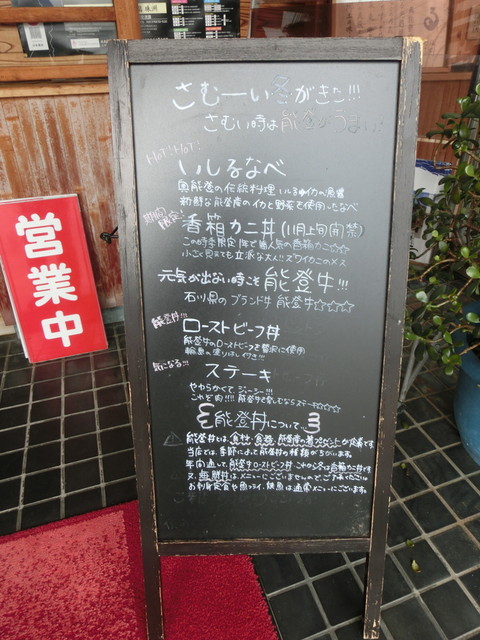 さむーい冬がきた!!!
さむい時は能登がうまい!
HOT! HOT!
いしるなべ
奥能登の伝統料理 いしる◆イカの魚醤
新鮮な能登産のイカと野菜を使用したなべ
期間限定!
香箱カニ丼(11月上旬解禁)
この時季限定
小さく見えても立派な大人!! ズワイガニのメス
元気が出ない時こそ 能登牛!!!
石川県のブランド牛 能登牛☆☆☆☆
能登丼!!!
ローストビーフ丼
能登牛のローストビーフを贅沢に使用
気になる!!!
ステーキ
やわらかくて ジューシー!!!
これぞ肉!!!! 能登牛を楽しむならステーキ☆☆☆☆
能登丼について...
能登丼とは、食材・食器・能登産の箸プレゼントが定義です
当店では、季節によって能登丼の種類がちがいます。
年間通して、能登牛ローストビーフ丼・これから冬は香箱カニ丼です
又、海鮮丼はメニューにございませんので、ご了承ください。
お刺身定食や魚フライ、焼魚は通常メニューにございます。
営業中